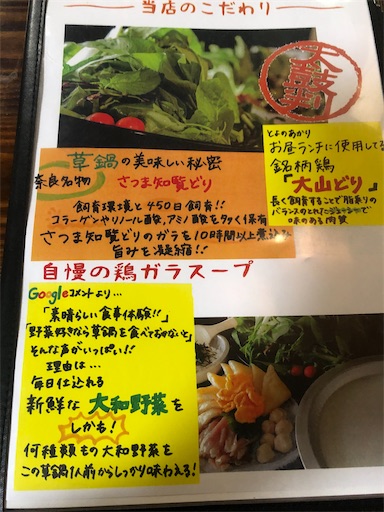 当店のこだわり
太鼓判
とよのあかり
お昼ランチに使用してる
銘柄鶏
「大山どり」
長く飼育することで脂乗りの
バランスのとれたジューシーで
味のある肉質
草鍋の美味しい秘密
奈良名物 さつま知覧どり
飼育環境と450日飼育!!
コラーゲンやリノール酸、アミノ酸を多く保有
さつま知覧どりのガラを10時間以上煮込み
旨みを凝縮!!
自慢の鶏ガラスープ
Googleコメントより…
「素晴らしい食事体験!!」
「野菜好きなら草鍋を食べておかないと」
そんな声がいっぱい!!
理由は…
毎日仕入れる
新鮮な大和野菜を
しかも!
何種類もの大和野菜を
この草鍋1人前からしっかり味わえる!